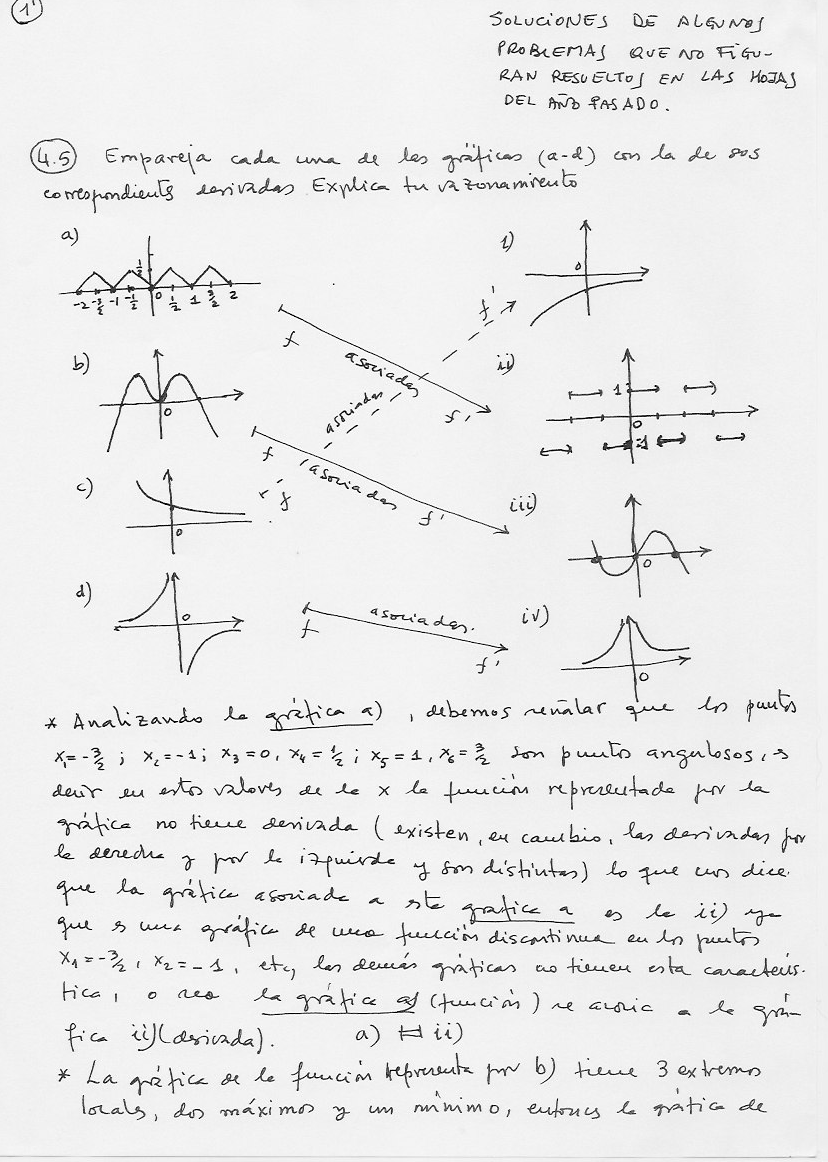 1'
SOLUCIONES DE ALGUNOS
PROBLEMAS QUE NO FIGU-
RAN RESUELTOS EN LAS HOJAS
DEL AÑO PASADO.
4.5 Empareja cada una de las gráficas (a-d) con la de sus
correspondients derivadas Explica tu razonamiento
a)
1/2
-2 -3/2 -1 -1/2 0 1/2 1 3/2 2
f asociadas f'
1)
0
f asociadas f'
b)
0
f asociadas f'
ii)
1
0
-1
c)
0
iii)
0
d)
0
f asociadas. f'
iv)
0
* Analizando la gráfica a) , debemos señalar que los puntos
x1=-3/2 ; x2=-1; x3=0, x4=1/2 ; x5=1, x6=3/2 son puntos angulosos, es
decir en estos valores de la x la función representada por la
gráfica no tiene derivada (existen, en cambio, las derivadas por
la derecha y por la izquierda y son distintas) lo que nos dice
que la gráfica asociada a esta grafica a es la ii) ya
que es una gráfica de una función discontinua en los puntos
x1=-3/2, x2=-1, etc, las demás gráficas no tienen esta caracterís-
tica, o sea la gráfica a) (función) se asocia a la grá-
fica ii)(derivada). a) ↔ ii)
* La gráfica de la función representa por b) tiene 3 extremos
locales, dos máximos y un mínimo, entonces la gráfica de